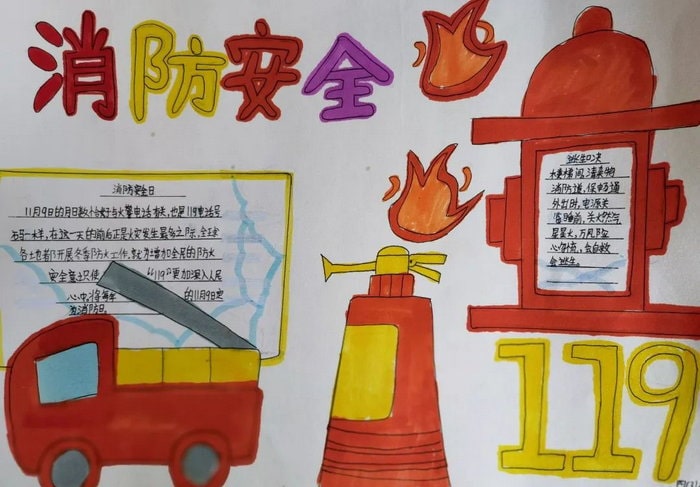 消防安全
消防安全日
11月9日的月日数恰好与火警电话 也是119电话号
码一样，在这一天的前后正是火灾发生最多之际，全球
各地都开展冬季防火工作，就为增加全民的防火
安全意识使“119”更加深入人民
心中，将每年的11月9日定
为消防日。
逃生口决
楼梯间，清杂物
消防通，保电通
外出时，电源关
临睡前，关火然气
星星火，万凡隐
会逃生。
119